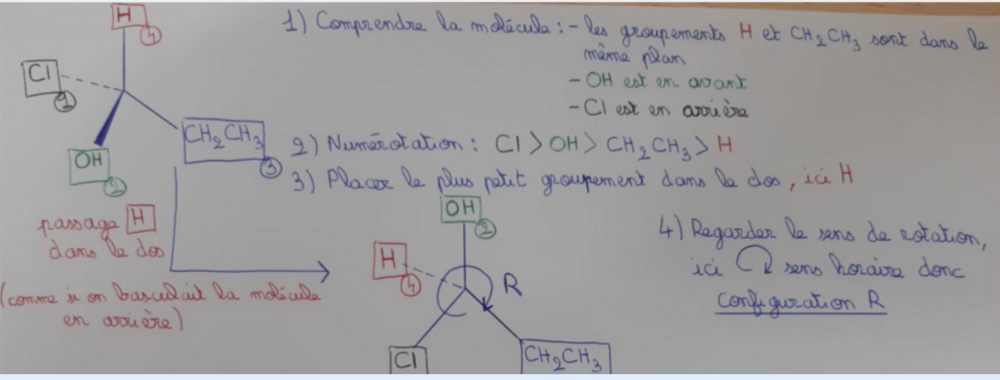 H
4
Cl
1
OH
2
CH2CH3
3
1) Comprendre la molécule : - les groupements H et CH2CH3 sont dans le
même plan
- OH est en avant
- Cl est en arrière
2) Numérotation : Cl > OH > CH2CH3 > H
3) Placer le plus petit groupement dans le dos, ici H
passage H
dans le dos
(comme si on basculait la molécule
en arrière)
OH
2
H
4
R
Cl
CH2CH3
4) Regarder le sens de rotation,
ici sens horaire donc
configuration R